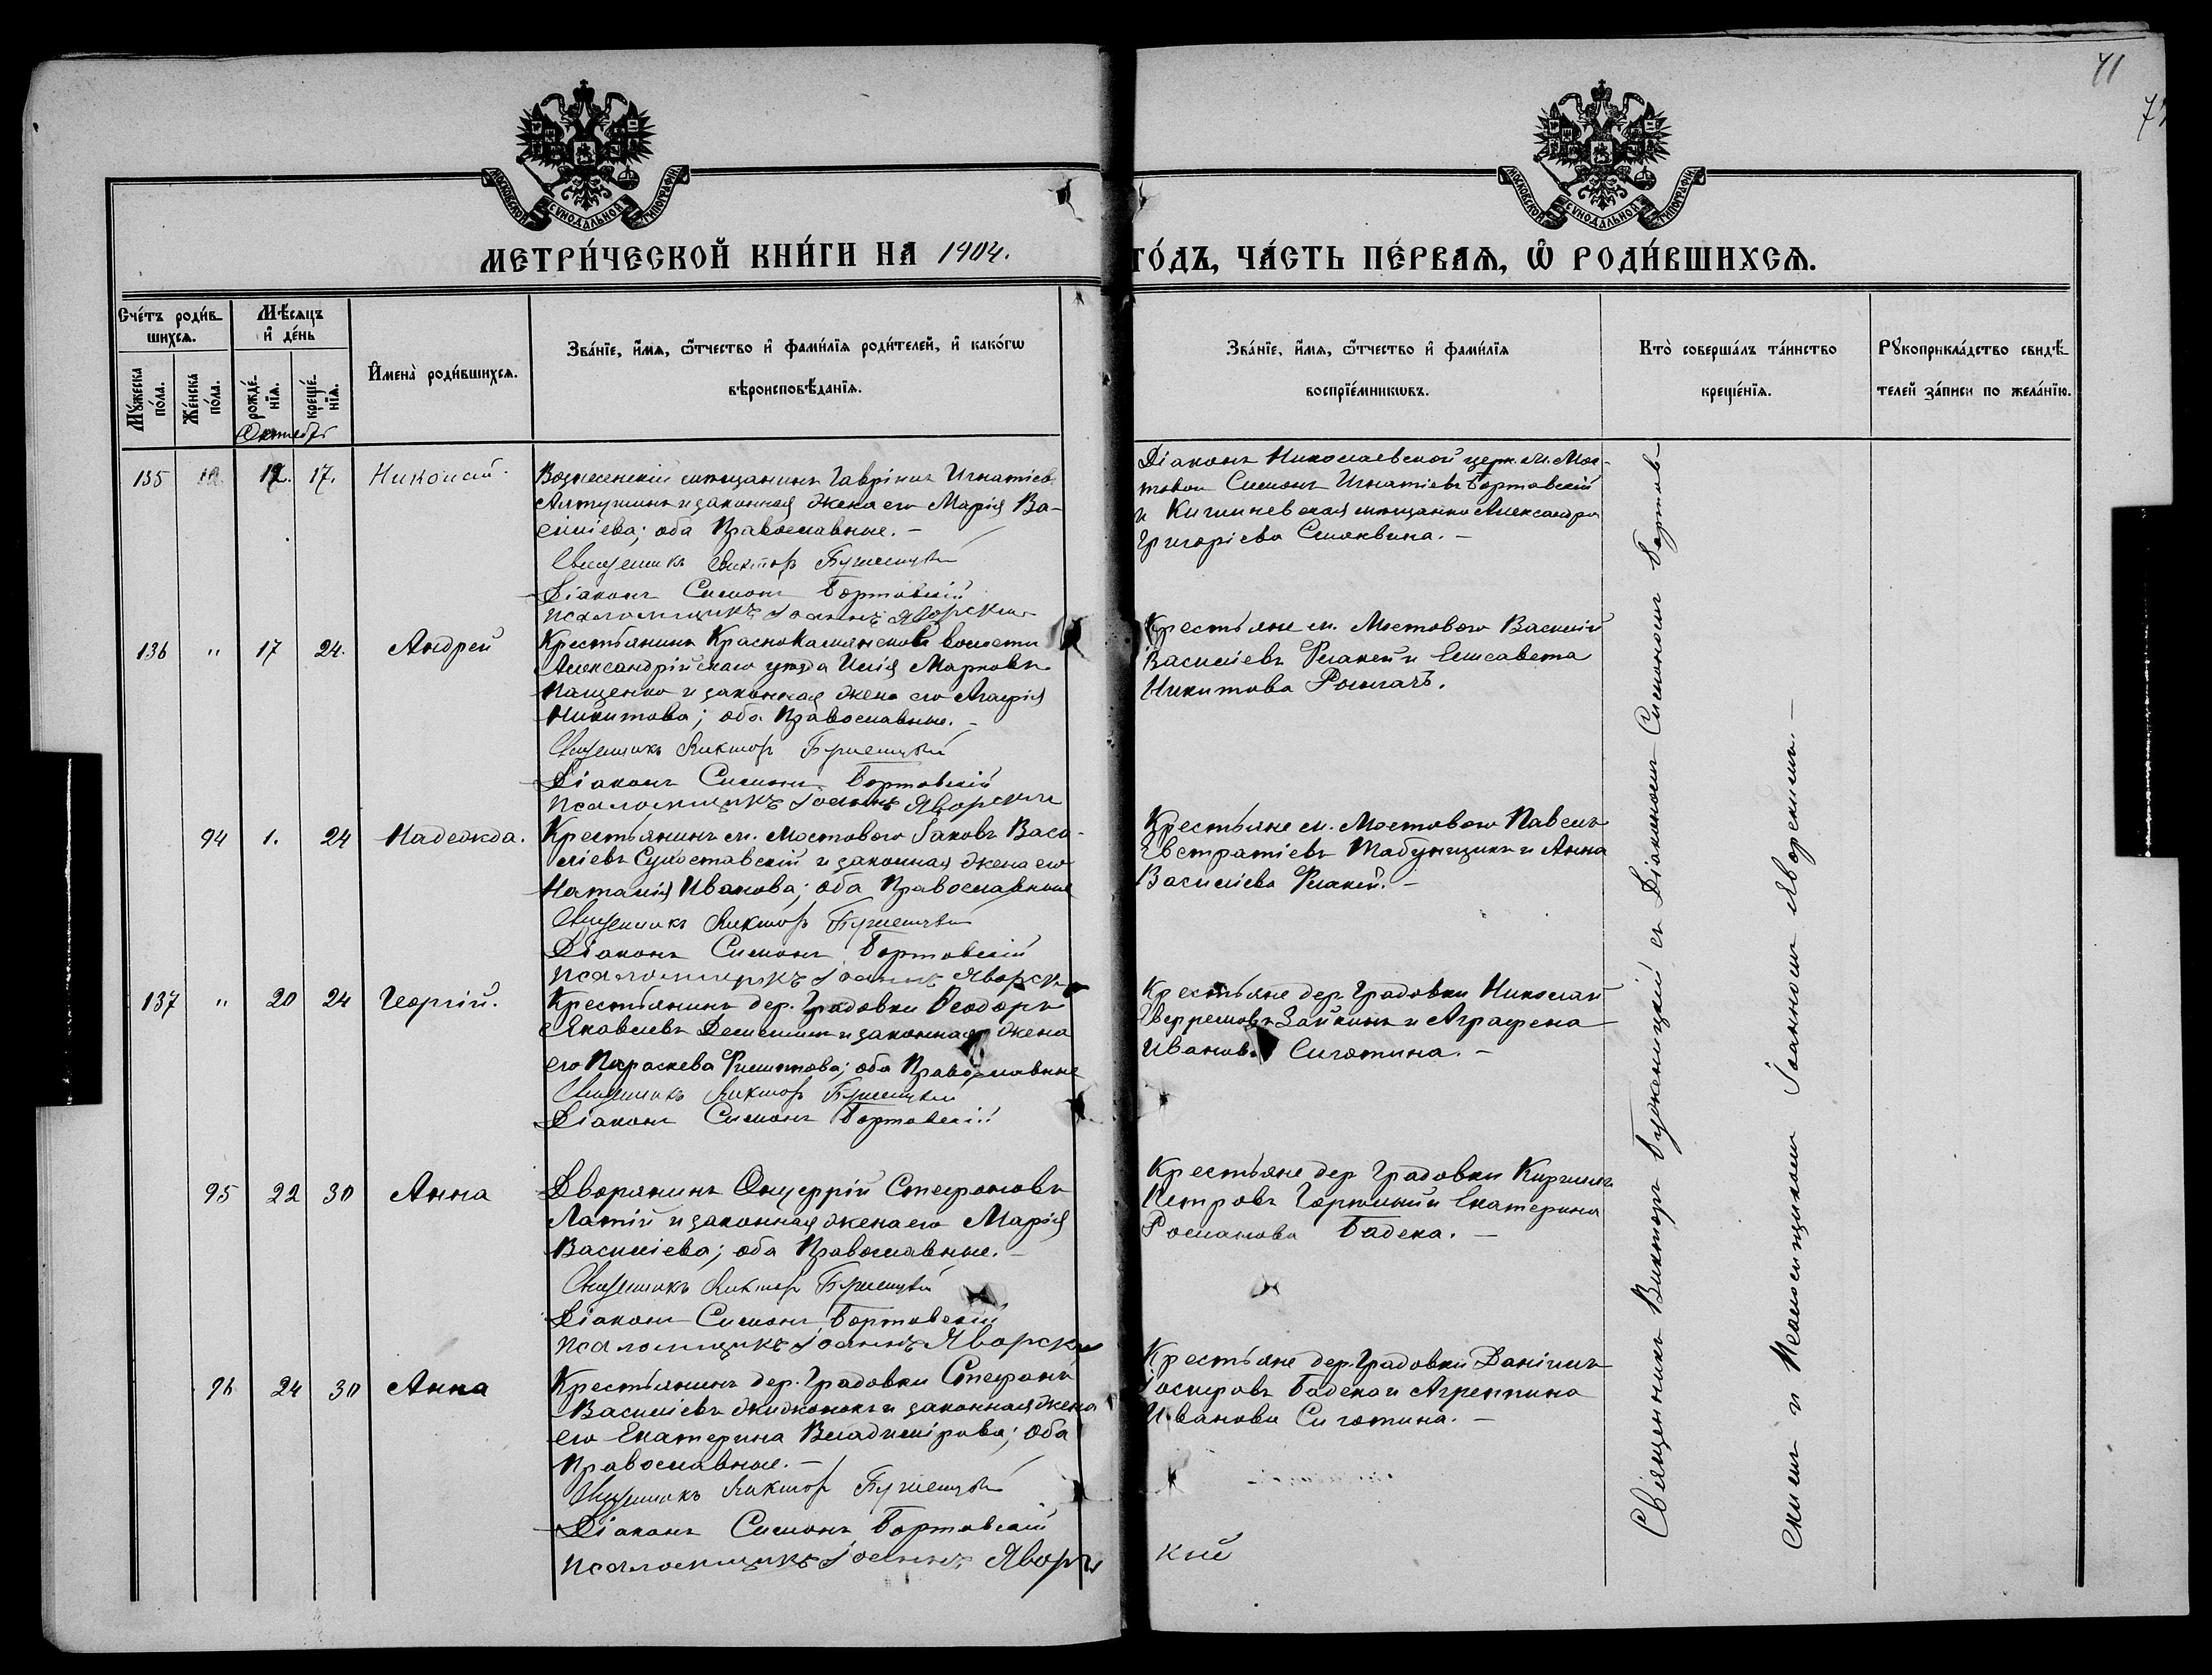 41
МОСКОВСКОЙ СУНОДАЛЬНОЙ ТИПОГРАФIИ
МОСКОВСКОЙ СУНОДАЛЬНОЙ ТИПОГРАФIИ
МЕТРИ́ЧЕСКОЙ КНИ́ГИ НА 1904.
ГО́ДЪ, ЧА́СТЬ ПЕ́РВАѦ, Ѡ РОДИ́ВШИХСѦ.
Сче́тъ роди́в-
шихсѧ.
Мꙋ́жеска по́ла.
Же́нска по́ла.
Мѣ́сѧцъ
и де́нь
рожде́нїѧ.
креще́нїѧ.
Октябрь
Имена̀ роди́вшихсѧ.
Зва́нїе, и́мѧ, ѻ́тчество и фами́лїѧ роди́телей, и како́гѡ
вѣроисповѣ́данїѧ.
Зва́нїе, и́мѧ, ѻ́тчество и фами́лїѧ
воспрїе́мникѡвъ.
Кто̀ соверша́лъ та́инство
креще́нїѧ.
Рꙋкоприкла́дство свидѣ́-
телей за́писи по жела́нїю.
135 17. Николай.
Вознесенскій мѣщанинъ Гавріилъ Игнатіевъ
и законная жена его Марія Ва-
силіева; оба Православные. –
Священникъ Викторъ Бужницкій
Діаконъ Симонъ Бортовскій
Псаломщикъ Іоаннъ Яворскій
Діаконъ Николаевской церк. м. Мос-
тового Симонъ Игнатіевъ Бортовскій
и Кишиневская мѣщанка Александра
Григоріева Смоквина. –
136 " 17 24. Андрей
Крестьянинъ Краснокаменской волости
Александрійскаго уѣзда Илія Марковъ
Пащенко и законная жена его Агафія
Никитова; оба Православные. –
Священникъ Викторъ Бужницкій
Діаконъ Симонъ Бортовскій
Псаломщикъ Іоаннъ Яворскій
Крестьяне м. Мостового Василій
Василіевъ и Елисавета
Никитова
94 1. 24 Надежда.
Крестьянинъ м. Мостового Іаковъ Васи-
ліевъ и законная жена его
Наталія Иванова; оба Православные
Священникъ Викторъ Бужницкій
Діаконъ Симонъ Бортовскій
Псаломщикъ Іоаннъ Яворскі
Крестьяне м. Мостового Павелъ
Евстратіевъ Табунщикъ и Анна
Василіева
137 " 20 24 Георгій.
Крестьянинъ дер. Градовки Ѳеодоръ
Яковлевъ и законная жена
его Параскева Филиппова; оба Православные
Священникъ Викторъ Бужницкій
Діаконъ Симонъ Бортовскій
Крестьяне дер. Градовки Николай
Зайкинъ и Аграфена
Иванова Сиготина. –
95 22 30 Анна
Дворянинъ Онуфрій Стефановъ
Латій и законная жена его Марія
Василіева; оба Православные. –
Священникъ Викторъ Бужницкій
Діаконъ Симонъ Бортовскій
Псаломщикъ Іоаннъ Яворскій
Крестьяне дер. Градовки Кириллъ
Петровъ и Екатерина
Романова Бадека. –
96 24 30 Анна
Крестьянинъ дер. Градовки Стефанъ
Василіевъ и законная жена
его Екатерина Владимірова; оба
Православные. –
Священникъ Викторъ Бужницкій
Діаконъ Симонъ Бортовскій
Псаломщикъ Іоаннъ Яворскій
Крестьяне дер. Градовки Даніилъ
Іосифовъ Бадека и Агриппина
Иванова Сиготина. –
Священникъ Викторъ Бужницкій съ Діакономъ Симономъ Бортов-
скимъ и Псаломщикомъ Іоанномъ Яворскимъ. –